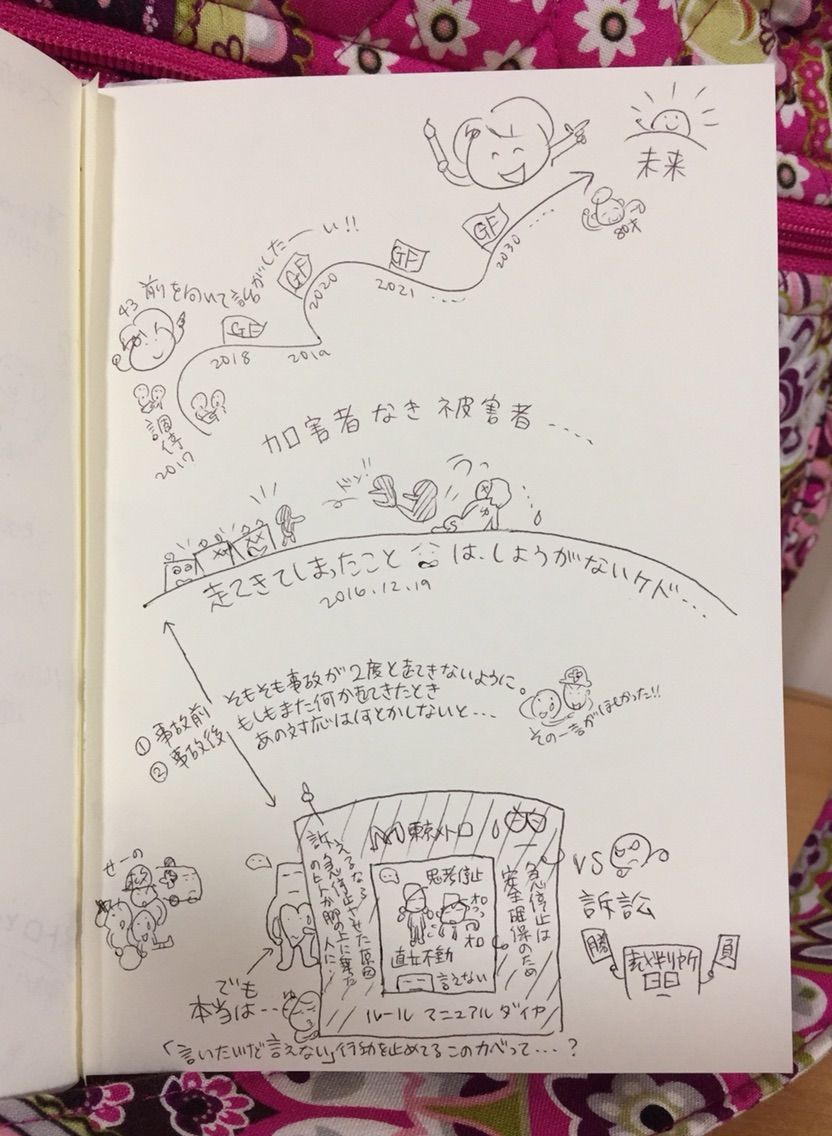 未来
80才
GF
2030
GF
2021
GF
2020
前を向いて話がしたーい!!
43
GF
2018
2019
調停
2017
加害者なき被害者····
ドン!!
うっ
起きてしまったことは、しょうがないケド···
2016.12.19
① 事故前 そもそも事故が2度と起きないように。
② 事故後 もしもまた何か起きたとき
あの対応は何とかしないと···
その一言がほしかった!!
せーの
でも
本当は··
東京メトロ
訴えるなら
急停止させた原因
のヒトか
人に···
思考停止
オロ
オロ
直立不動
言えない
急停止は
安全確保のため
ルール マニュアル ダイヤ
VS
訴訟
勝
裁判所
負
「言いたいけど言えない」行動を止めてるこのカベって···?